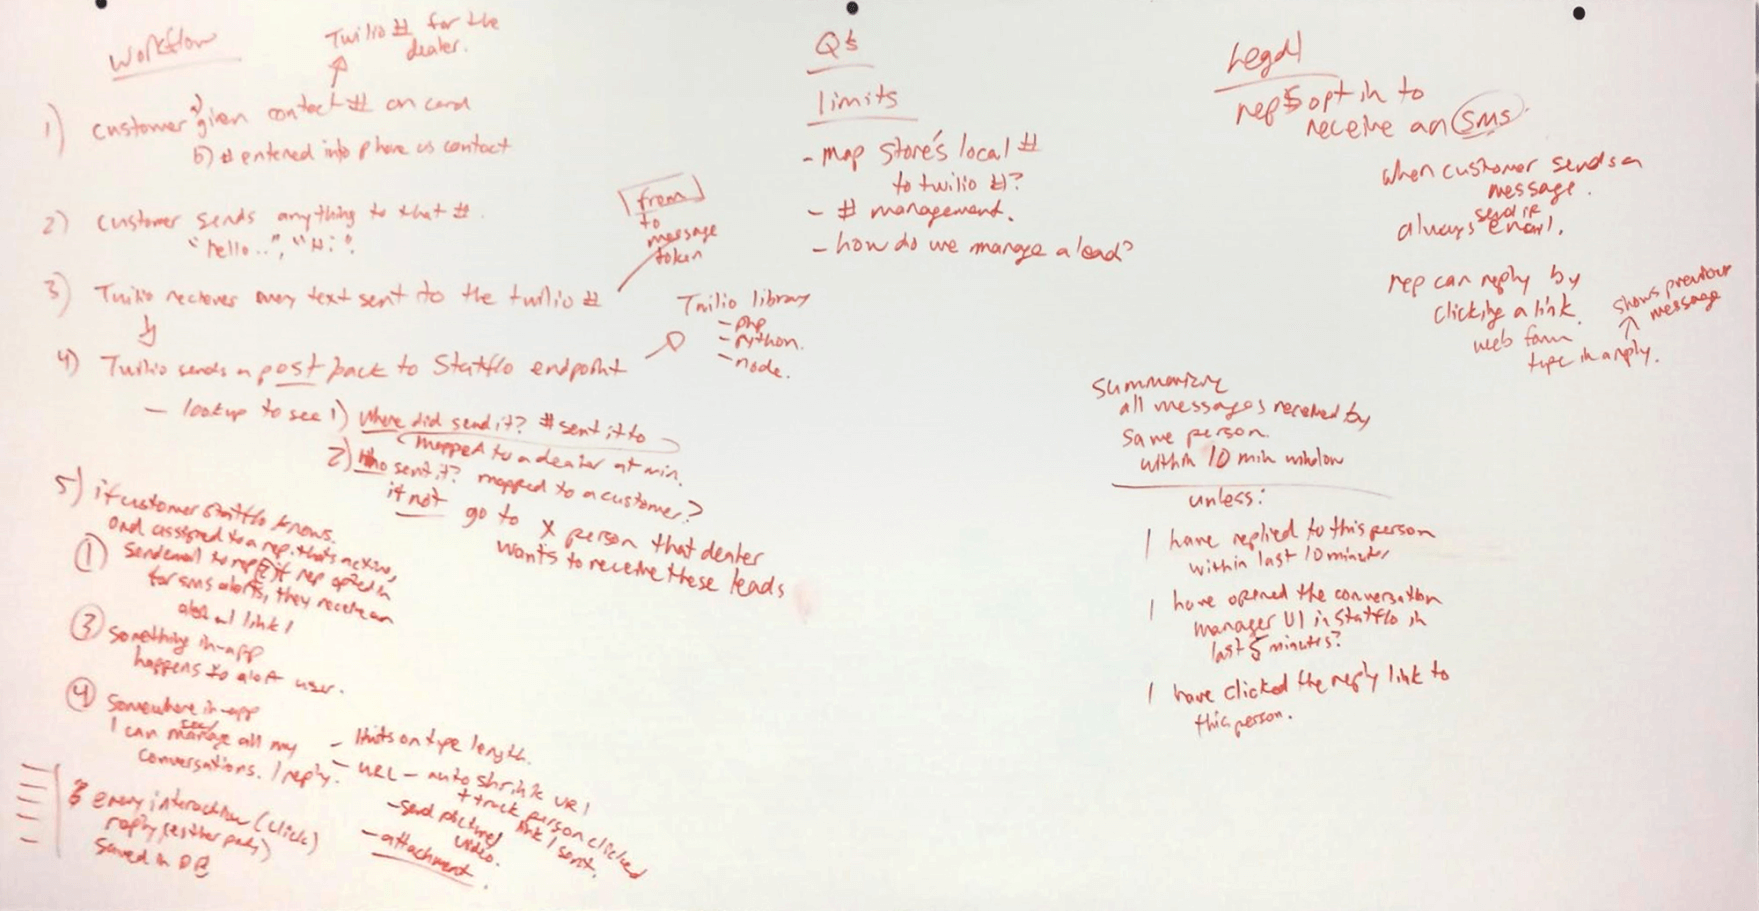 Workflow
Twilio # for the
dealer.
1) customer given contact # on card
b) # entered into phone as contact
2) customer sends anything to that #.
"hello..", "Hi".
from
to
message
token
3) Twilio recieves every text sent to the twilio #
4) Twilio sends a post back to Statflo endpoint
Twilio library
- php
- python.
- node.
- lookup to see 1) Where did send it? # sent it to
mapped to a dealer at min.
2) Who sent it? mapped to a customer?
if not go to X person that dealer
wants to receive these leads
5) if customer statflo knows.
and assigned to a rep. that's active,
1 Send email to rep 2 if rep opted in
for sms alerts, they receive an
alert w/ link /
3 Something in-app
happens to alert user.
4 Somewhere in-app
I can see/ manage all my
conversations. / reply.
- limits on type length.
- URL - auto shrink URL
+ track person clicked
link I sent.
- send picture/
video.
- attachment.
every interaction (click)
reply (either party)
Saved in DB
Q's
limits
- map store's local #
to twilio #?
- # management.
- how do we manage a lead?
Legal
rep's opt in to
receive an SMS
when customer sends a
message.
always send an email.
rep can reply by
clicking a link.
web form
type in a reply.
shows previous
message
Summarize
all messages received by
same person.
within 10 min window
unless:
I have replied to this person
within last 10 minutes
I have opened the conversation
manager UI in statflo in
last 5 minutes?
I have clicked the reply link to
this person.